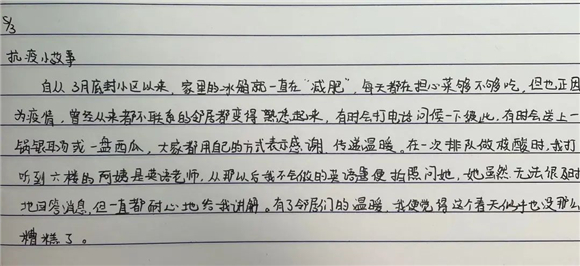 5/3
抗疫小故事
自从3月底封小区以来，家里的冰箱就一直在“减肥”，每天都在担心菜够不够吃，但也正因
为疫情，曾经从来都不联系的邻居都变得熟悉起来，有时会打电话问候一下彼此，有时会送上一
锅银耳汤或一盘西瓜，大家都用自己的方式表示感谢，传递温暖。在一次排队做核酸时，我打
听到六楼的阿姨是英语老师，从那以后我不会做的英语题便拍照问她，她虽然无法很及时
地回答消息，但一直都耐心地给我讲解。有了邻居们的温暖，我便觉得这个春天似乎也没那么
糟糕了。